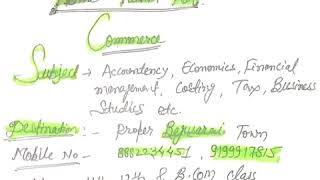 Commerce
Subject → Accountency, Economics, Financial
management, Costing, Tax, Business
Studies etc.
Destination:- Proper Begusarai Town
Mobile No- 8882234451, 9199917815
12th & B.com class